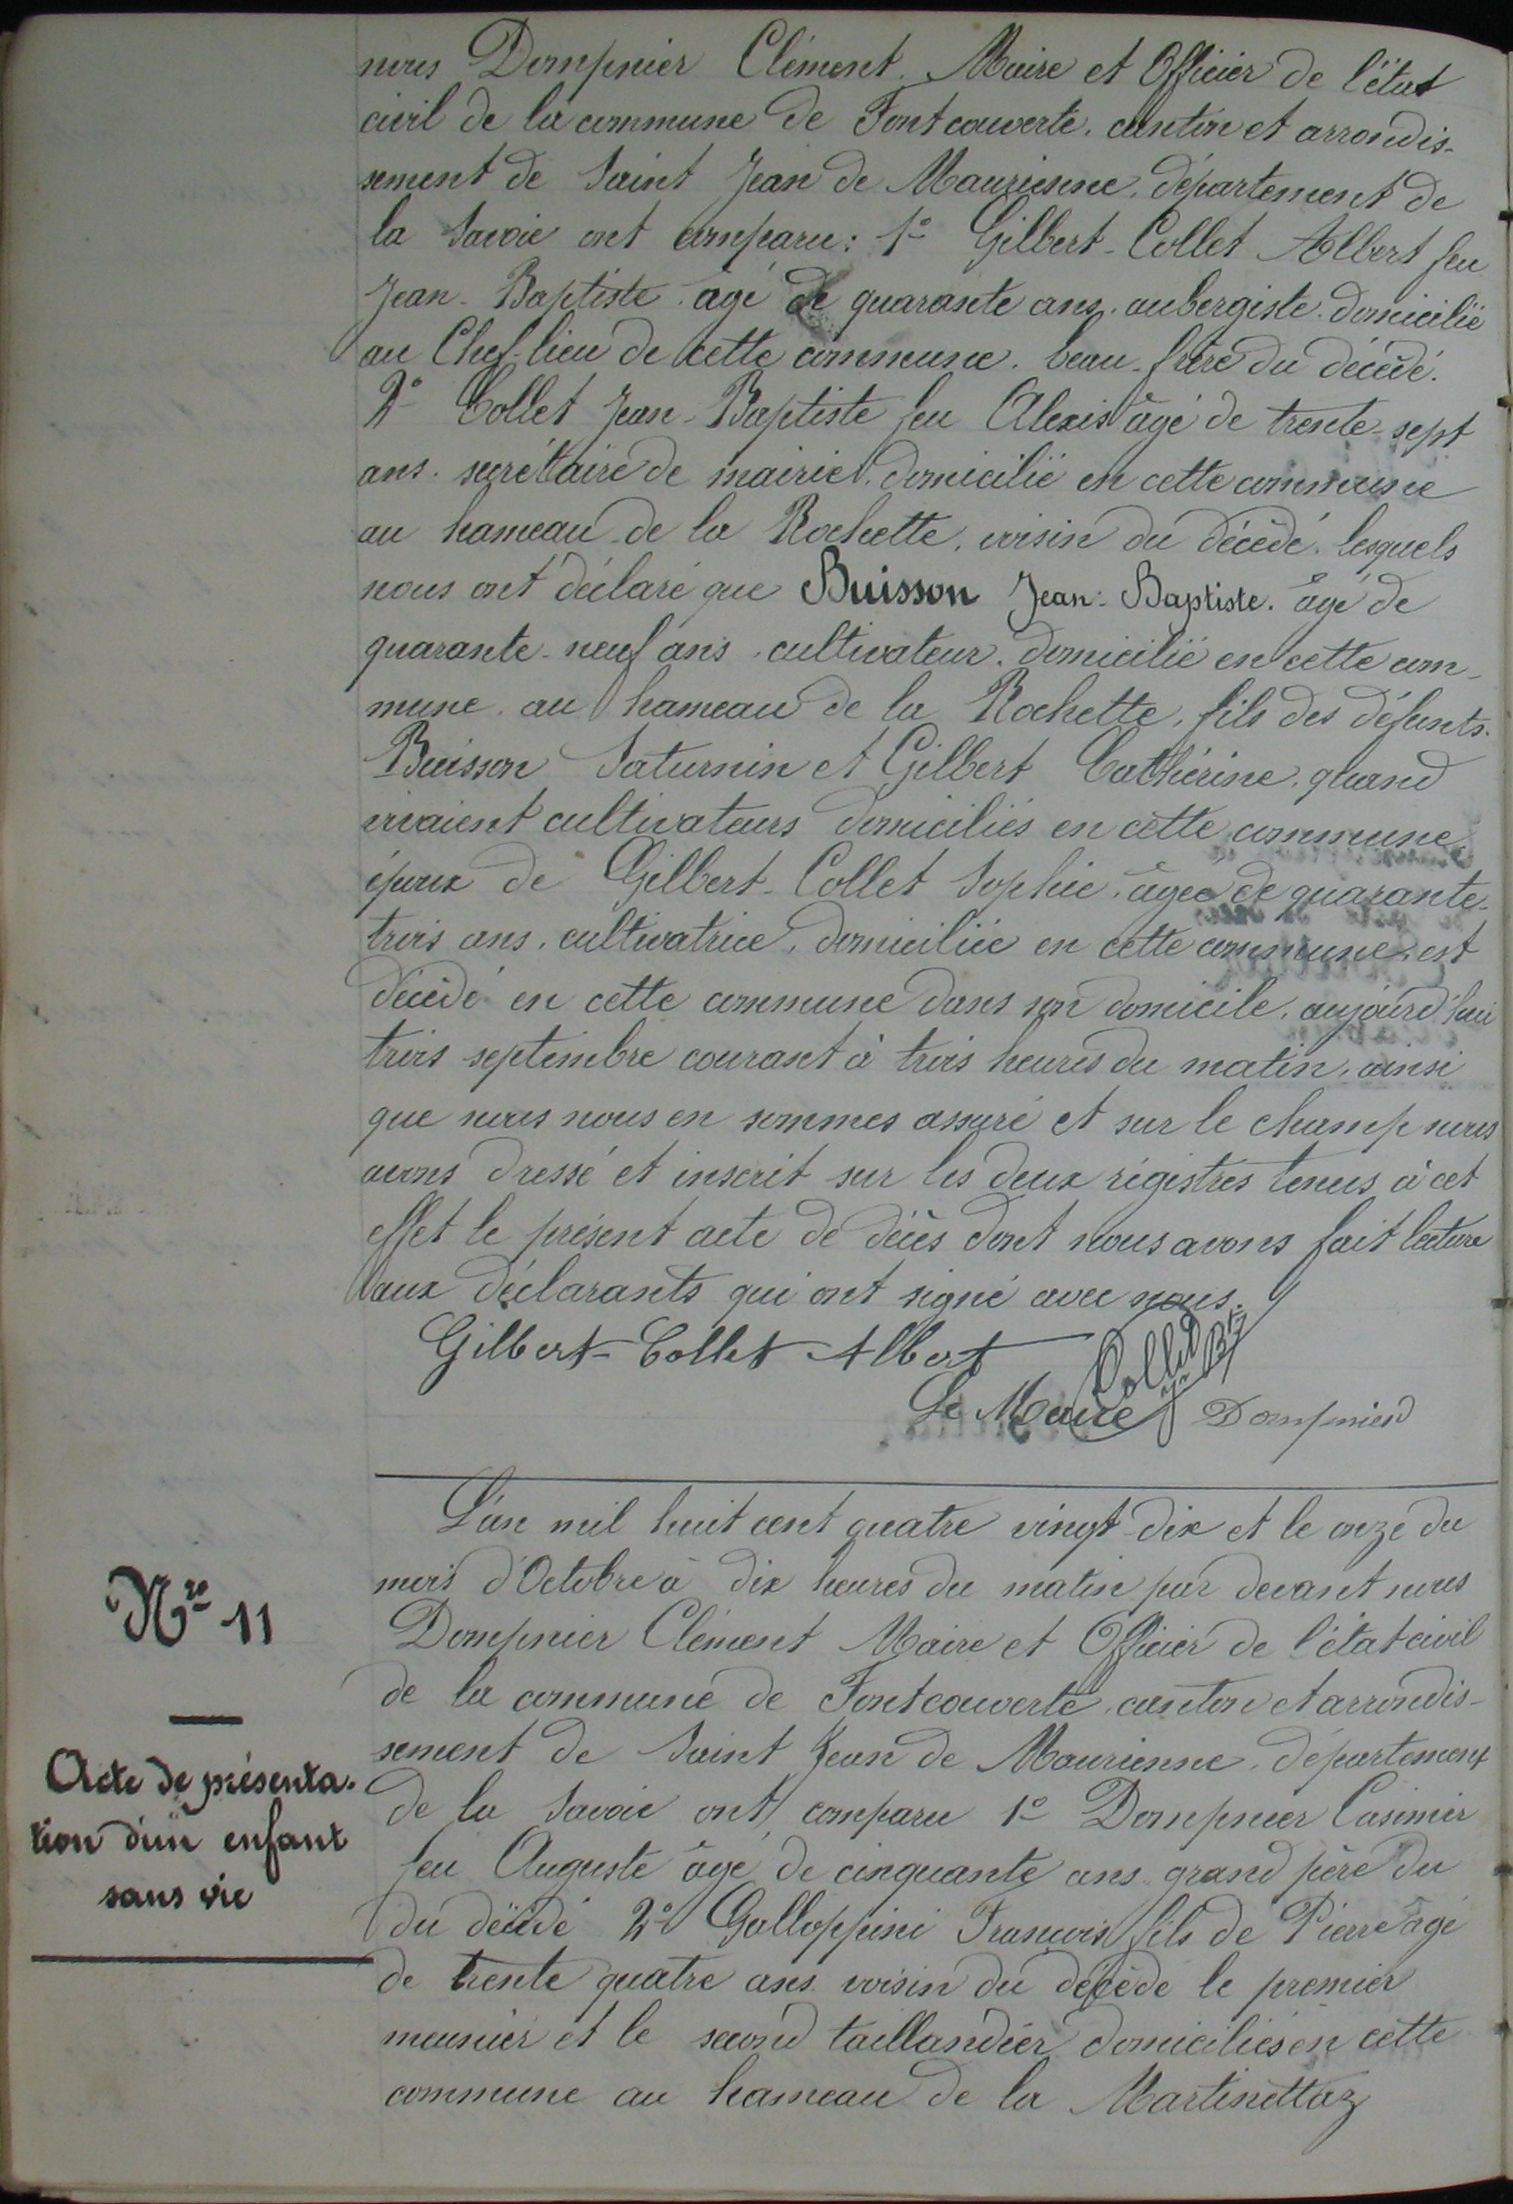 nous Dompnier Clément. Maire et Officier de l'état
civil de la commune de Fontcouverte. canton et arrondis-
sement de Saint Jean de Maurienne. département de
la Savoie ont comparu : 1° Gilbert-Collet Albert feu
Jean-Baptiste. âgé de quarante ans. aubergiste. domicilié
au Chef-lieu de cette commune. beau-frère du décédé.
2° Collet Jean-Baptiste feu Alexis âgé de trente-sept
ans. secrétaire de mairie. domicilié en cette commune
au hameau de la Rochette. voisin du décédé. lesquels
nous ont déclaré que Buisson Jean-Baptiste. âgé de
quarante-neuf ans. cultivateur. domicilié en cette com-
mune. au hameau de la Rochette. fils des défunts.
Buisson Saturnin et Gilbert Cathérine. quand
vivaient cultivateurs domiciliés en cette commune.
époux de Gilbert-Collet Sophie. âgée de quarante-
trois ans. cultivatrice. domiciliée en cette commune. est
décédé en cette commune dans son domicile. aujourd'hui
trois septembre courant à trois heures du matin. ainsi
que nous nous en sommes assuré et sur le champ nous
avons dressé et inscrit sur les deux régistres tenus à cet
effet le présent acte de décès dont nous avons fait lecture
aux déclarants qui ont signé avec nous.
Gilbert-Collet Albert Collet Jn Bte
Le Maire Dompnier
L'an mil huit cent quatre vingt dix et le onze du
mois d'Octobre à dix heures du matin par devant nous
Dompnier Clément Maire et Officier de l'état civil
de la commune de Fontcouverte. canton et arrondis-
sement de Saint Jean de Maurienne. département
de la Savoie ont comparu 1° Dompnier Casimir
feu Auguste âgé de cinquante ans. grand père du
du décédé 2° Galloppini François fils de Pierre âgé
de trente quatre ans. voisin du décédé le premier
meunier et le second taillandier domiciliés en cette
commune au hameau de la Martinettaz
Nro 11
Acte de présenta-
tion d'un enfant
sans vie